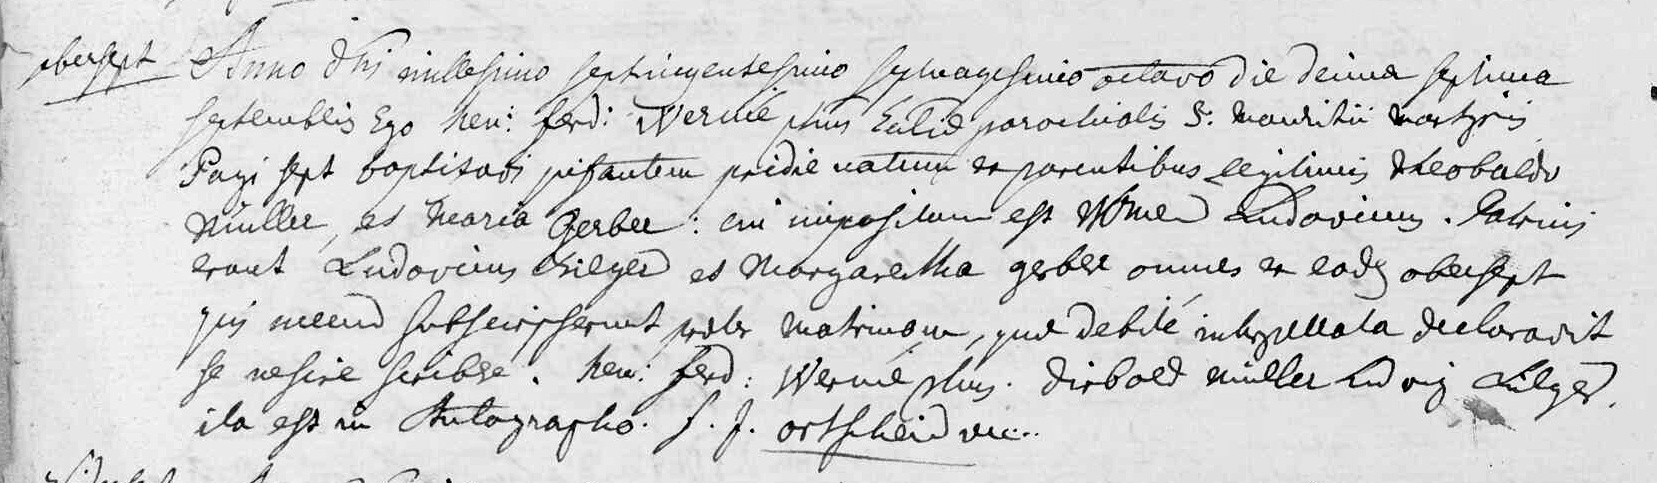 obersept Anno dni millesimo septingentesimo septuagesimo octavo die decima septima
septembris Ego hen: ferd: Wernié phus Eccliæ parochialis S: Mauritii Martyris
Pagi sept baptisavi infantem pridie natum ex parentibus legitimis theobaldo
Müller, et Maria Gerber: cui impositum est Nomen Ludovicus. Patrini
erant Ludovicus et Margaretha gerber omnes ex eadem obersept
qui mecum subscripserunt præter Matrinam, quæ debité interpellata declaravit
se nescire scribere. hen: ferd: Wernié phus. diebold müller Ludwig
ita est in Autographo. f. j. ortscheid vic...